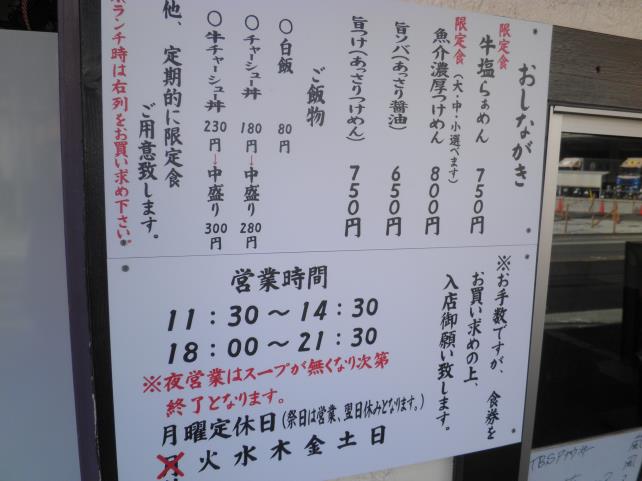 おしながき
限定食
牛塩らぁめん 750円
限定食(大・中・小選べます)
魚介濃厚つけめん 800円
旨ソバ(あっさり醤油) 650円
旨つけ(あっさりつけめん) 750円
ご飯物
○白飯 80円
○チャーシュー丼 180円→中盛り 280円
○牛チャーシュー丼 230円→中盛り 300円
他、定期的に限定食
ご用意致します。
ランチ時は右列をお買い求め下さい。
※お手数ですが、食券を
お買い求めの上、
入店御願い致します。
営業時間
11:30〜14:30
18:00〜21:30
※夜営業はスープが無くなり次第
終了となります。
月曜定休日(祭日は営業、翌日休みとなります。)
月火水木金土日